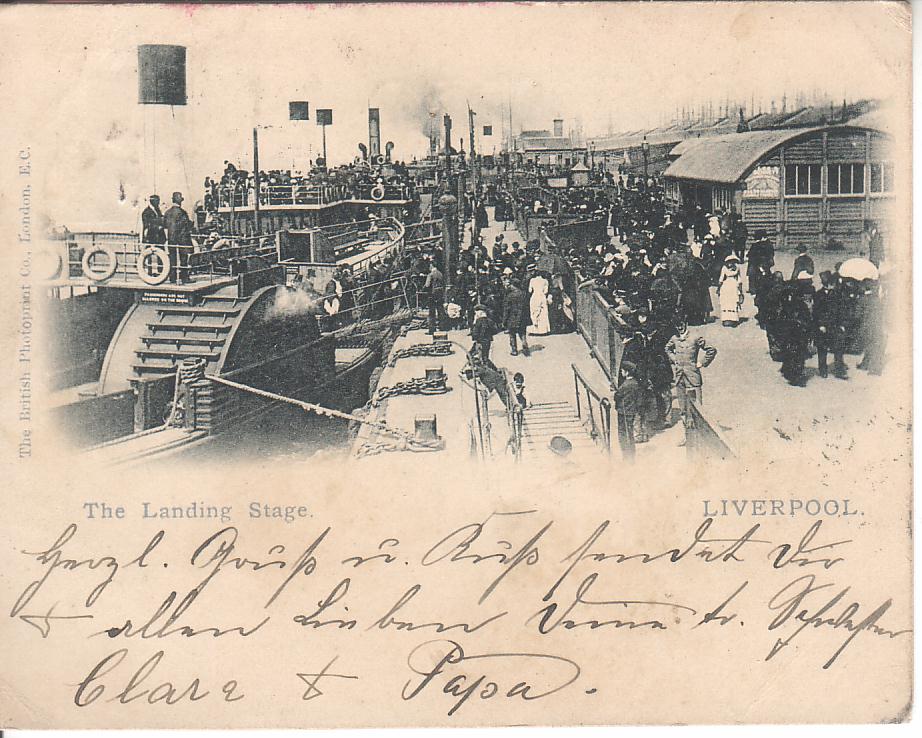 The British Photoprint Co., London. E.C.
The Landing Stage.
LIVERPOOL.
Herzl. Gruß u. Kuß sendet Dir
& allen Lieben Deine tr. Schwester
Clara & Papa.